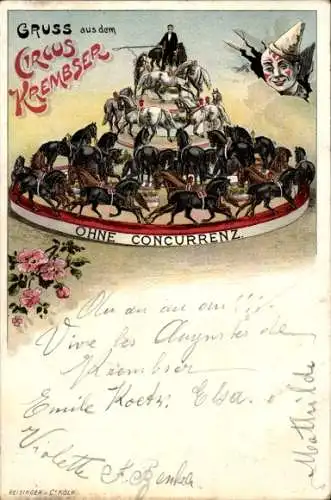 GRUSS aus dem
CIRCUS
KREMBSER
OHNE CONCURRENZ.
Vive les Auguste de
Krembser
Emile Elsa
Violette F.
Mathilde
REISINGER CTKÖLN